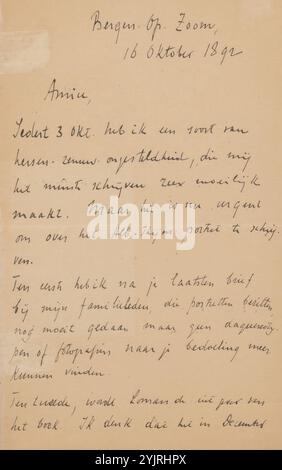 Bergen Op. Zoom,
16 Oktober 1892
Amice,
Sedert 3 Okt. heb ik een soort van
hersen-zenuw-ongesteldheid, die mij
het minste schrijven zeer moeilijk
maakt. Maar het is nu urgent
om over het portret te schrij
ven.
Ten eerste heb ik na je laatsten brief
bij mijn familieleden, die portretten bezitten
nog moeit gedaan maar geen daguerreoty
pen of fotografiën naar je bedoeling meer
kunnen vinden.
Ten tweede, wordt de uitgever van
het boek. Ik denk dat hie in December
alamy
Image ID: 2YJRHPX
www.alamy.com